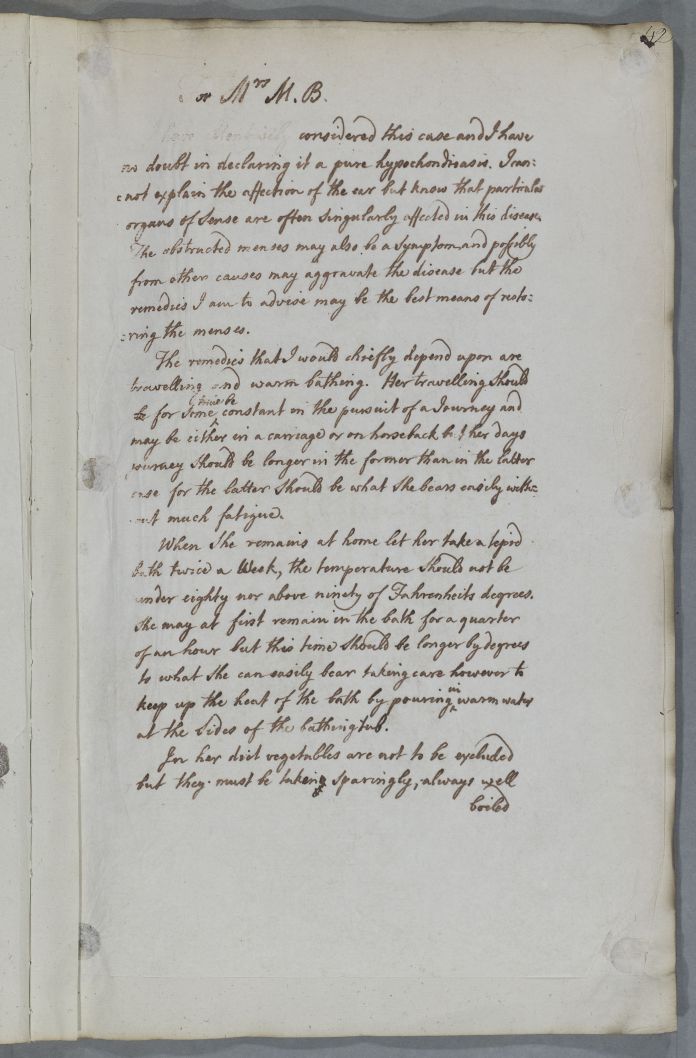 42
For Mrs M. B.
I have attentively considered this case and I have
no doubt in declaring it a pure hypochondriasis. I can:
:not explain the affection of the ear but know that particular
organs of Sense are often Singularly affected in this disease.
The obstructed menses may also be a Symptom and possibly
from other causes may aggravate the disease but the
remedies I am to advise may be the best means of resto:
:ring the menses.
The remedies that I would chiefly depend upon are
travelling and warm bathing. Her travelling Should
be for Some time be constant in the pursuit of a Journey and
may be either in a carriage or on horseback but her days
journey Should be longer in the former than in the latter
case for the latter Should be what She bears easily with:
:out much fatigue.
When She remains at home let her take a tepid
bath twice a Week, the temperature Should not be
under eighty nor above ninety of Fahrenheits degrees.
She may at first remain in the bath for a quarter
of an hour but this time Should be longer by degrees
to what She can easily bear taking care however to
keep up the heat of the bath by pouring in warm water
at the Sides of the bathingtub.
In her diet vegetables are not to be excluded
but they must be taken Sparingly, always well
boiled